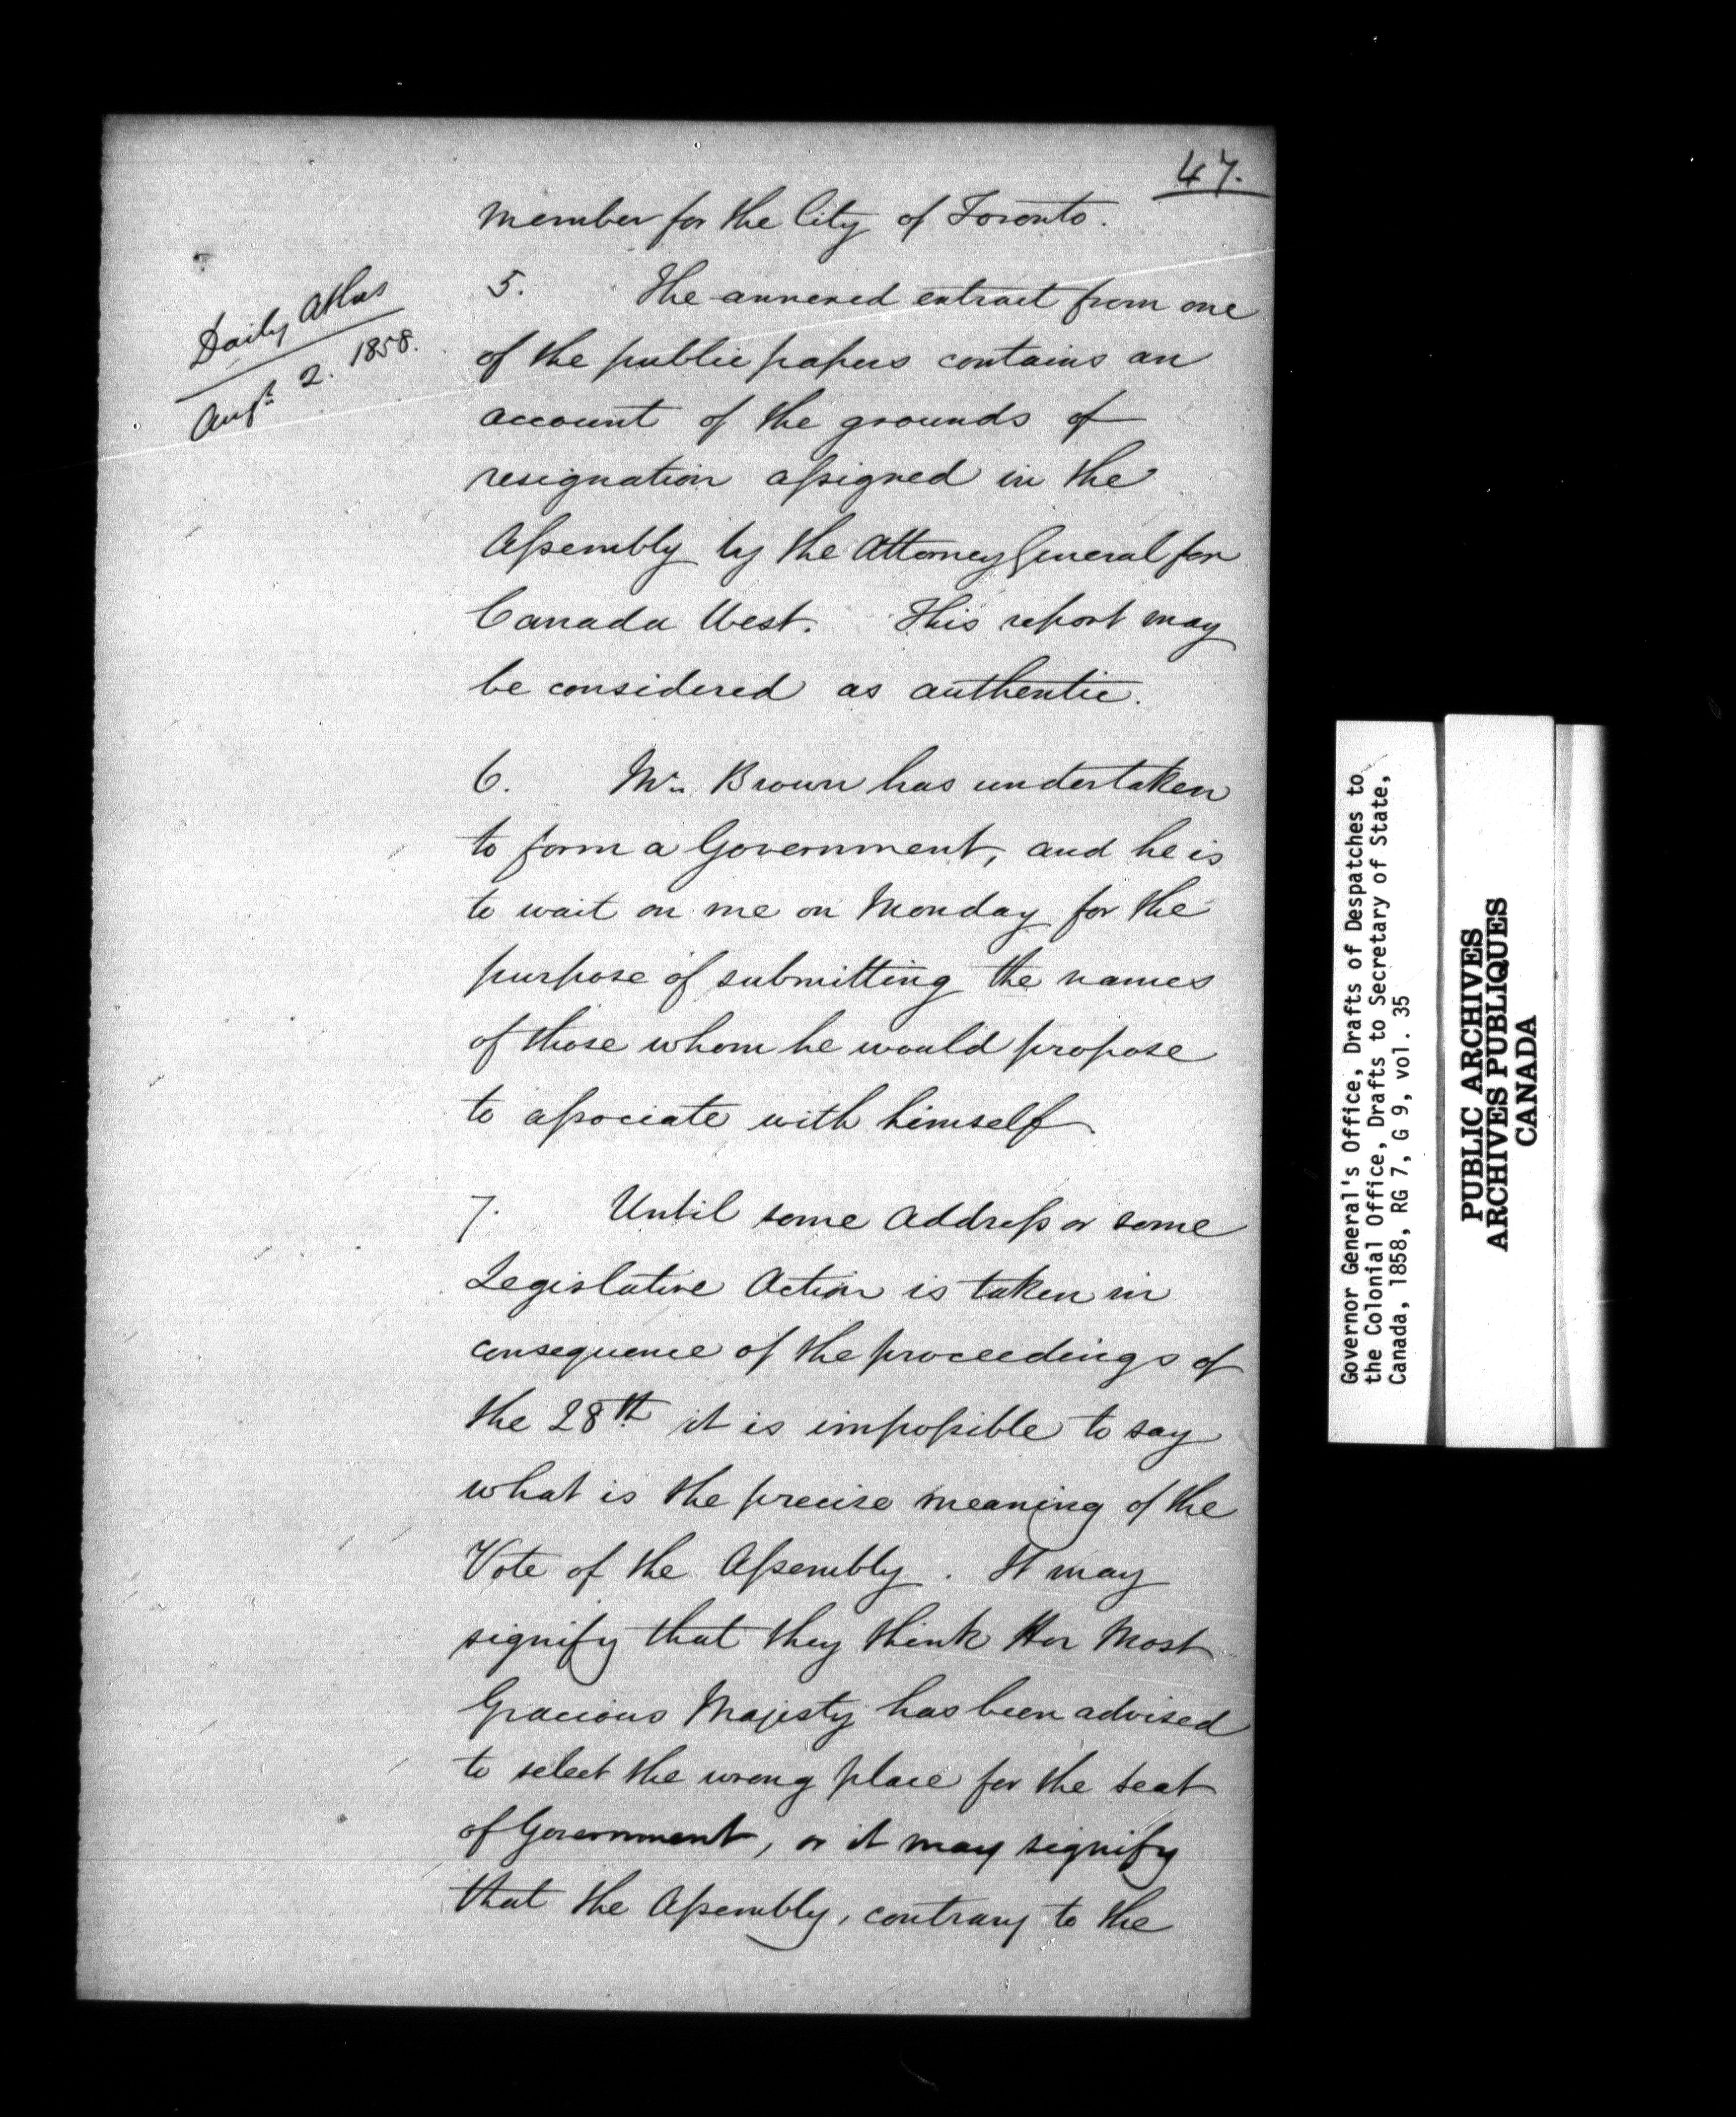 47.
member for the City of Toronto.
Daily Atlas
Augt. 2. 1858.
5. The annexed extract from one
of the public papers contains an
account of the grounds of
resignation assigned in the
Assembly by the Attorney General for
Canada West. This report may
be considered as authentic.
6. Mr. Brown has undertaken
to form a Government, and he is
to wait on me on Monday for the
purpose of submitting the names
of those whom he would propose
to associate with himself
7. Until some Address or some
Legislative Action is taken in
consequence of the proceedings of
the 28th it is impossible to say
what is the precise meaning of the
Vote of the Assembly. It may
signify that they think Her Most
Gracious Majesty has been advised
to select the wrong place for the seat
of Government, or it may signify
that the Assembly, contrary to the
Governor General's Office, Drafts of Despatches to
the Colonial Office, Drafts to Secretary of State,
Canada, 1858, RG 7, G 9, vol. 35
PUBLIC ARCHIVES
ARCHIVES PUBLIQUES
CANADA